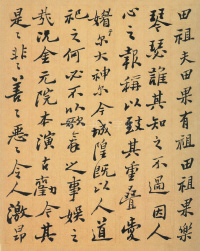 田祖夫田果有祖田祖果樂
琴瑟誰其知之不過因人
心之報稱以致其重疊愛
媚尔大神尔今城隍既以人道
祀之何必不以歌舞之事娛之
哉況金元院本演古勸今其
是〻非〻善〻惡〻令人激昂